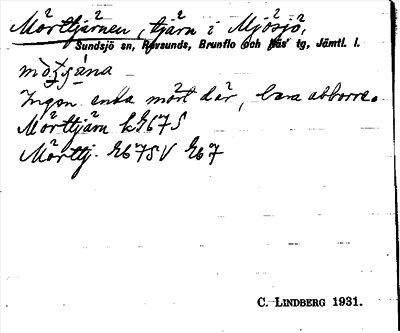 Mörttjärnen, tjärn i Mjösjö,
Sundsjö sn, Revsunds, Brunflo och Näs' tg, Jämtl. l.
Ingen enda mört där, bara abborre.
Mörttjärn kE67S
Mörttj. E67SV E67
C. LINDBERG 1931.